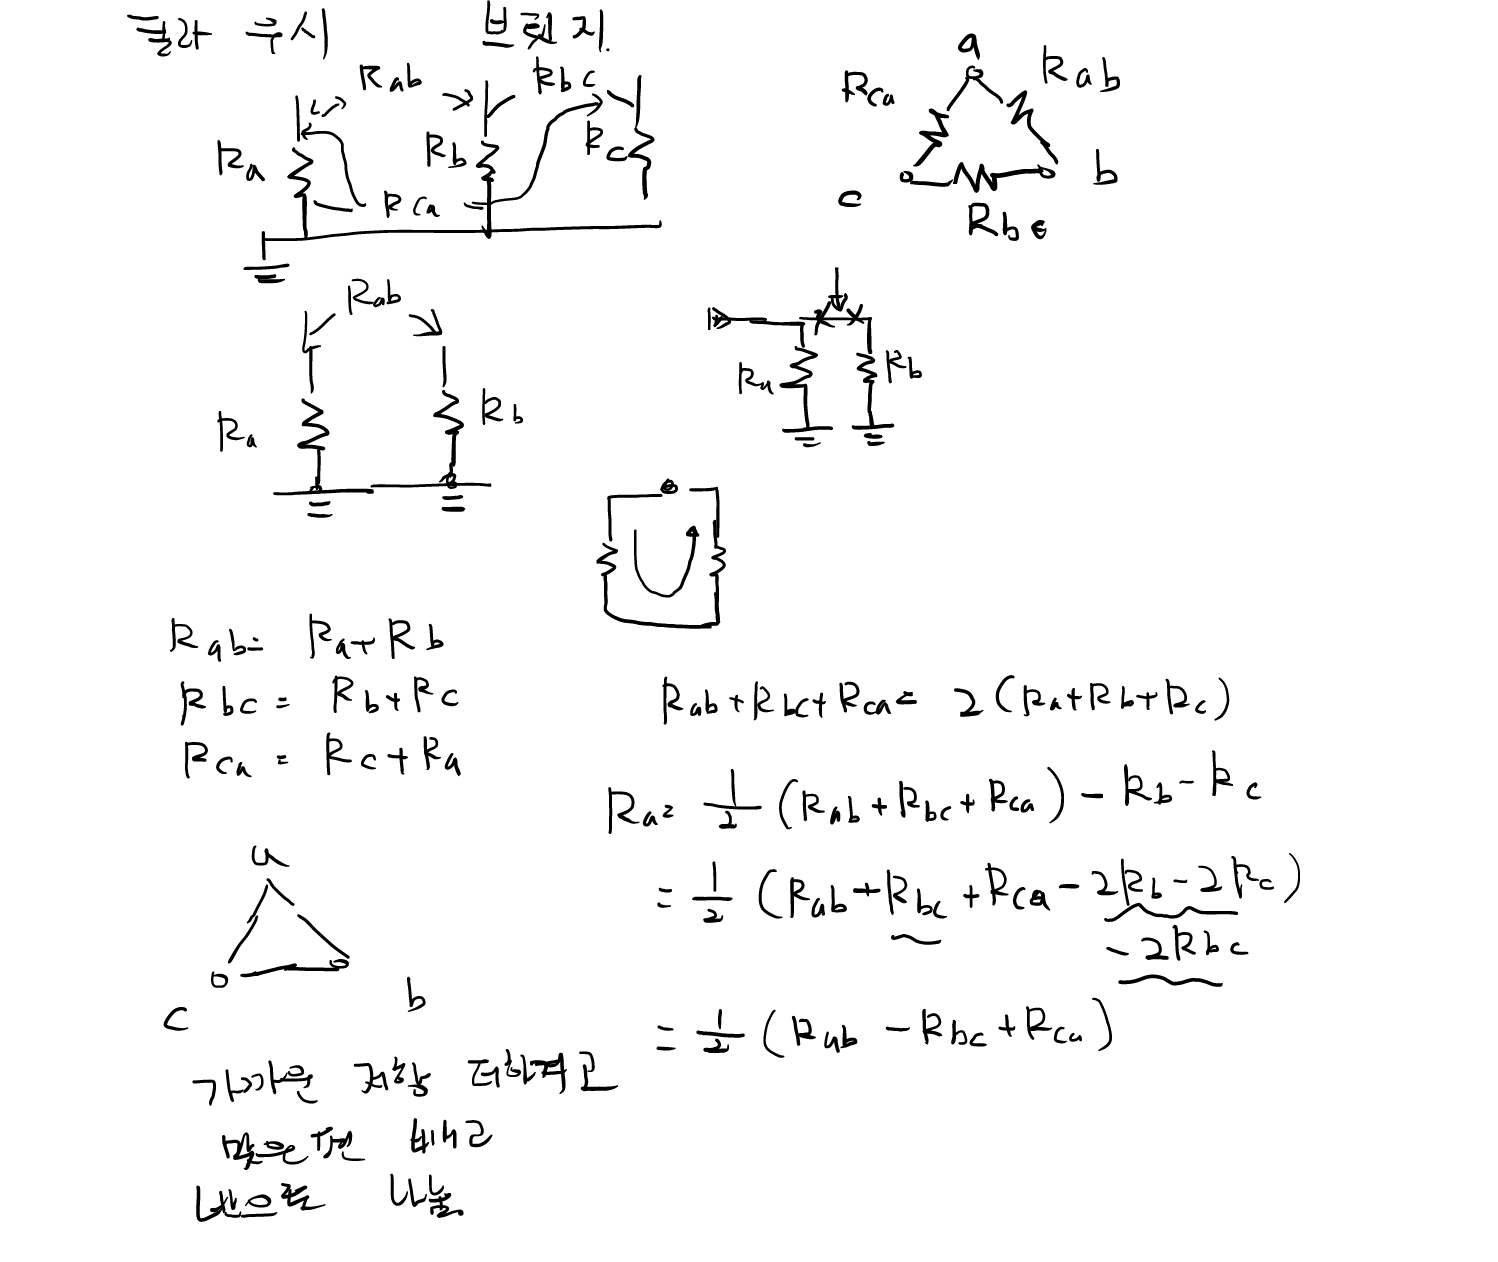 콜라 우시 브릿지.
Rab Rbc
Ra Rb Rc
Rca
a
Rca Rab
c b
Rbc
Rab
Ra Rb
Ra Rb
Rab = Ra + Rb
Rbc = Rb + Rc
Rca = Rc + Ra
Rab + Rbc + Rca = 2(Ra + Rb + Rc)
Ra = 1/2 (Rab + Rbc + Rca) - Rb - Rc
= 1/2 (Rab + Rbc + Rca - 2Rb - 2Rc)
- 2Rbc
= 1/2 (Rab - Rbc + Rca)
a
c b
가까운 저항 더하고
맞은편 빼고
반으로 나눔.